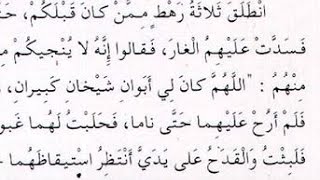 انْطَلَقَ ثَلَاثَةُ رَهْطٍ مِمَّنْ كَانَ قَبْلَكُمْ،
فَسَدَّتْ عَلَيْهِمُ الْغَارَ، فَقَالُوا إِنَّهُ لَا يُنْجِيكُمْ
مِنْهُمُ : "اللَّهُمَّ كَانَ لِي أَبَوَانِ شَيْخَانِ كَبِيرَانِ،
فَلَمْ أَرُحْ عَلَيْهِمَا حَتَّى نَامَا، فَحَلَبْتُ لَهُمَا
فَلَبِثْتُ وَالْقَدَحُ عَلَى يَدَيَّ أَنْتَظِرُ اسْتِيقَاظَهُمَا